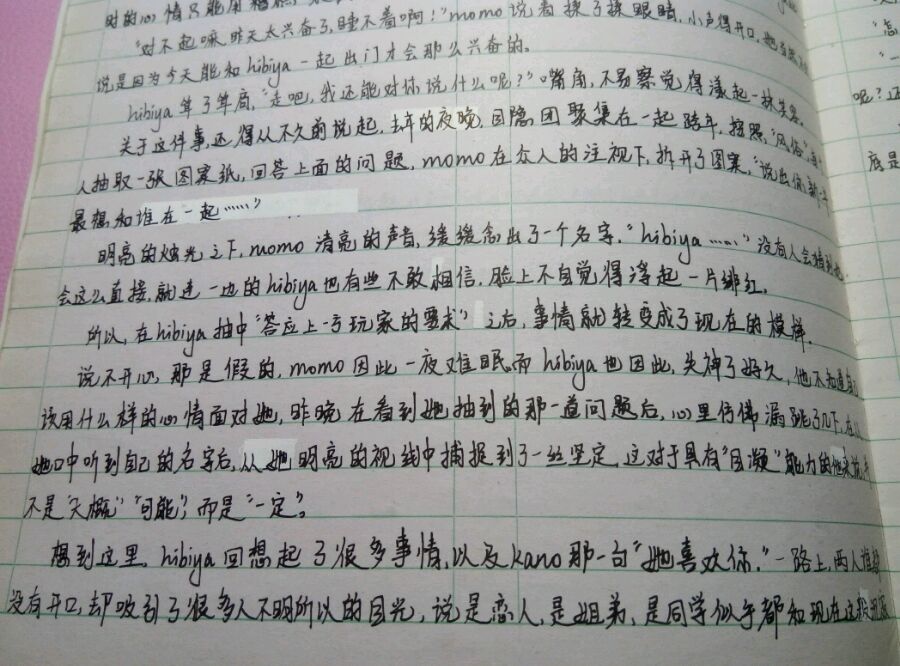 时的心情只能用
"对不起嘛,昨天太兴奋了,睡不着啊!"momo说着揉了揉眼睛,小声得开口,她
说是因为今天能和hibiya一起出门才会那么兴奋的。
hibiya耸了耸肩,"走吧,我还能对你说什么呢?"嘴角,不易察觉得漾起一抹笑意。
关于这件事,还得从不久前说起,去年的夜晚,目隐团聚集在一起跨年,按照,"风俗",每
人抽取一张图案纸,回答上面的问题,momo在众人的注视下,拆开了图案,"说出你新年
最想和谁在一起……"
明亮的烛光之下,momo清亮的声音,缓缓念出了一个名字,"hibiya……"没有人会猜到她
会这么直接,就连一边的hibiya也有些不敢相信,脸上不自觉得浮起一片绯红。
所以,在hibiya抽中"答应上一号玩家的要求"之后,事情就转变成了现在的模样.
说不开心,那是假的,momo因此一夜难眠。而hibiya也因此,失神了好久,他不知道自己
该用什么样的心情面对她,昨晚在看到她抽到的那一道问题后,心里仿佛漏跳了几下,在从
她口中听到自己的名字后,从她明亮的视线中捕捉到了一丝坚定,这对于具有"目凝"能力的他来说,并
不是"大概""可能",而是"一定"。
想到这里,hibiya回想起了很多事情,以及kano那一句"她喜欢你."一路上,两人谁都
没有开口,却吸引了很多人不明所以的目光,说是恋人,是姐弟,是同学似乎都和现在这
"怎
"一
呢?还
底是